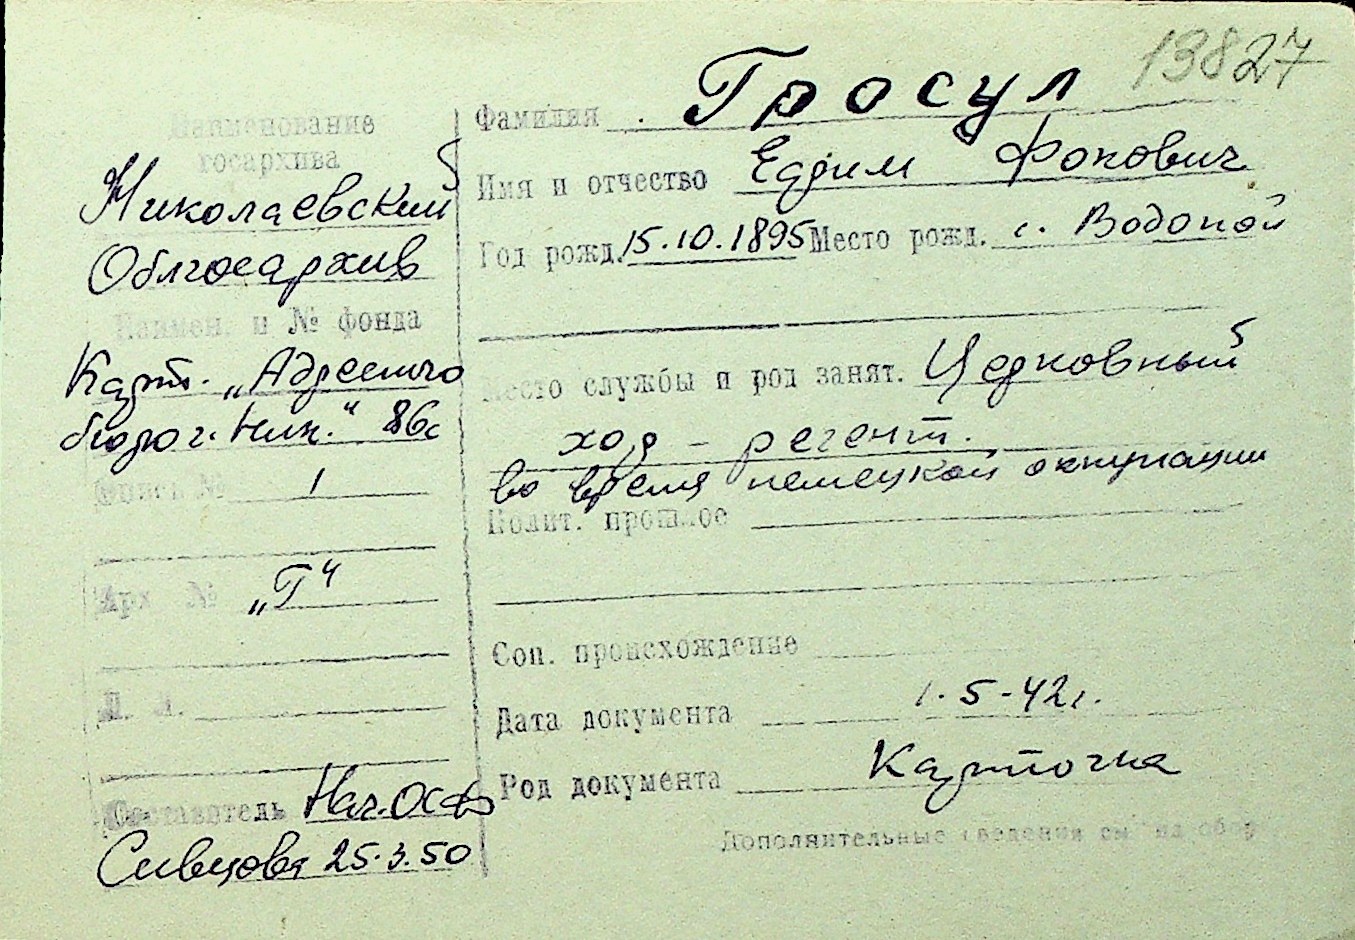 13827
Наименование
госархива
Николаевский
Облгосархив
Наимен. и № фонда
Карт. „Адресного
бюро г. Ник." 86с
Опись № 1
Арх № „Г"
Л. Л.
Составитель Нач. ОСФ
Сивцова 25.3.50
Фамилия Гросул
Имя и отчество Ефим Фокович
Год рожд. 15.10.1895 Место рожд. с. Водопой
Место службы и род занят. Церковный
хор – регент.
во время немецкой оккупации
Полит. прошлое
Соц. происхождение
Дата документа 1.5-42г.
Род документа Карточка
Дополнительные сведения см. на обор